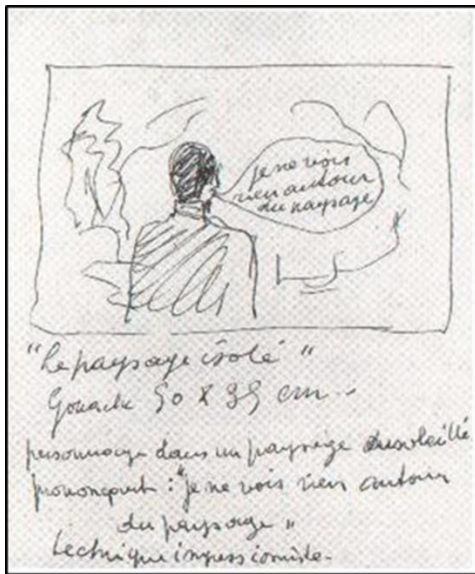 je ne vois
rien autour
du paysage
"Le paysage isolé"
Gouache 50 X 35 cm.
personnage dans un paysage ensoleillé
prononçant : "je ne vois rien autour
du paysage"
technique impressionniste.